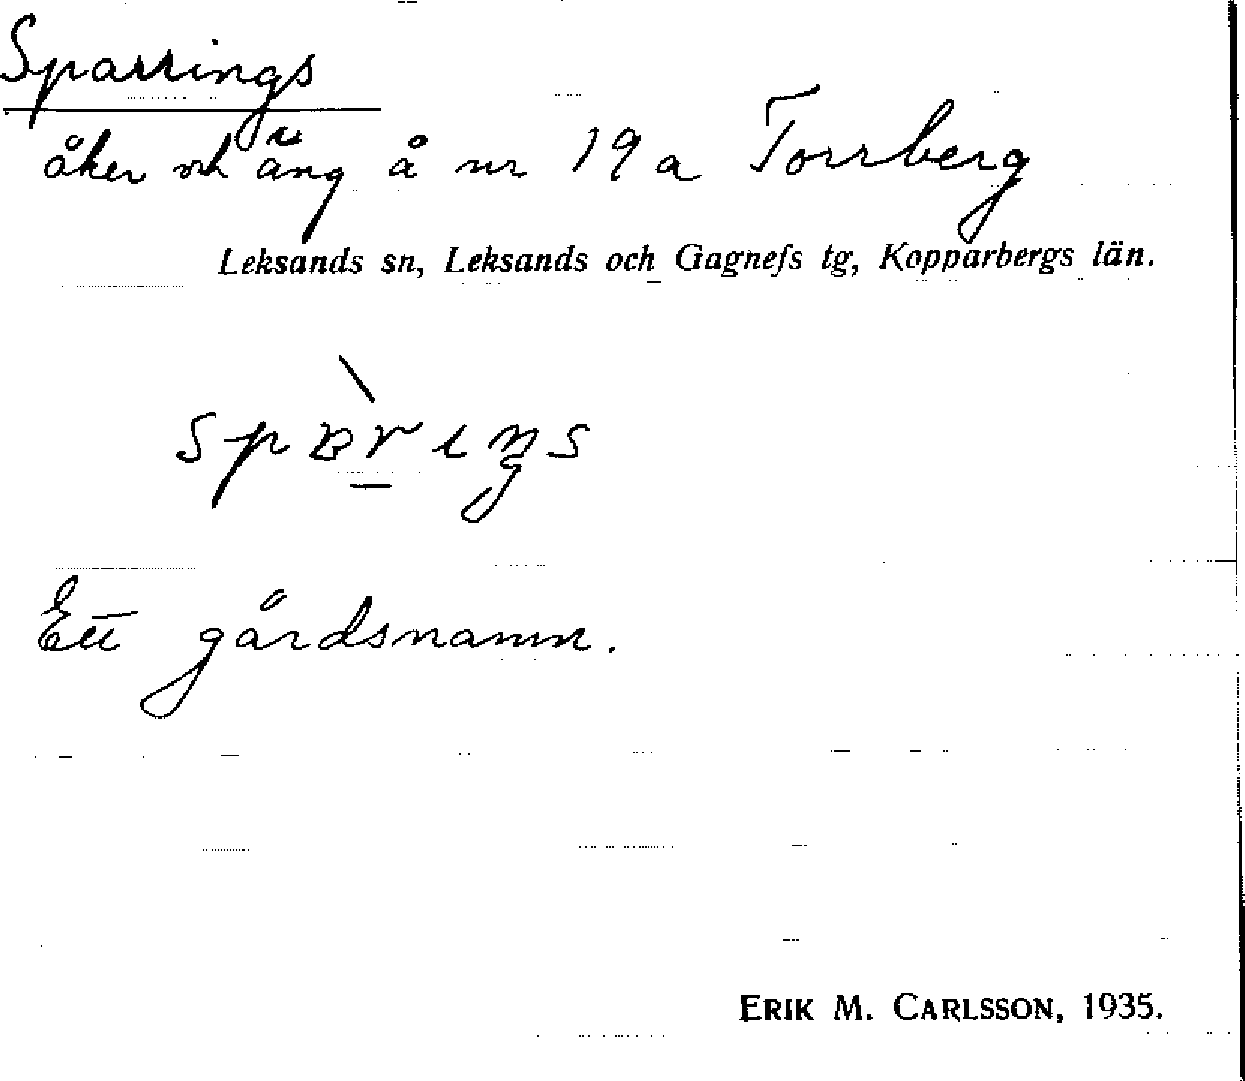 Sparrings
åker och äng å nr 19a Torrberg
Leksands sn, Leksands och Gagnefs tg, Kopparbergs län.
Ett gårdsnamn.
ERIK M. CARLSSON, 1935.